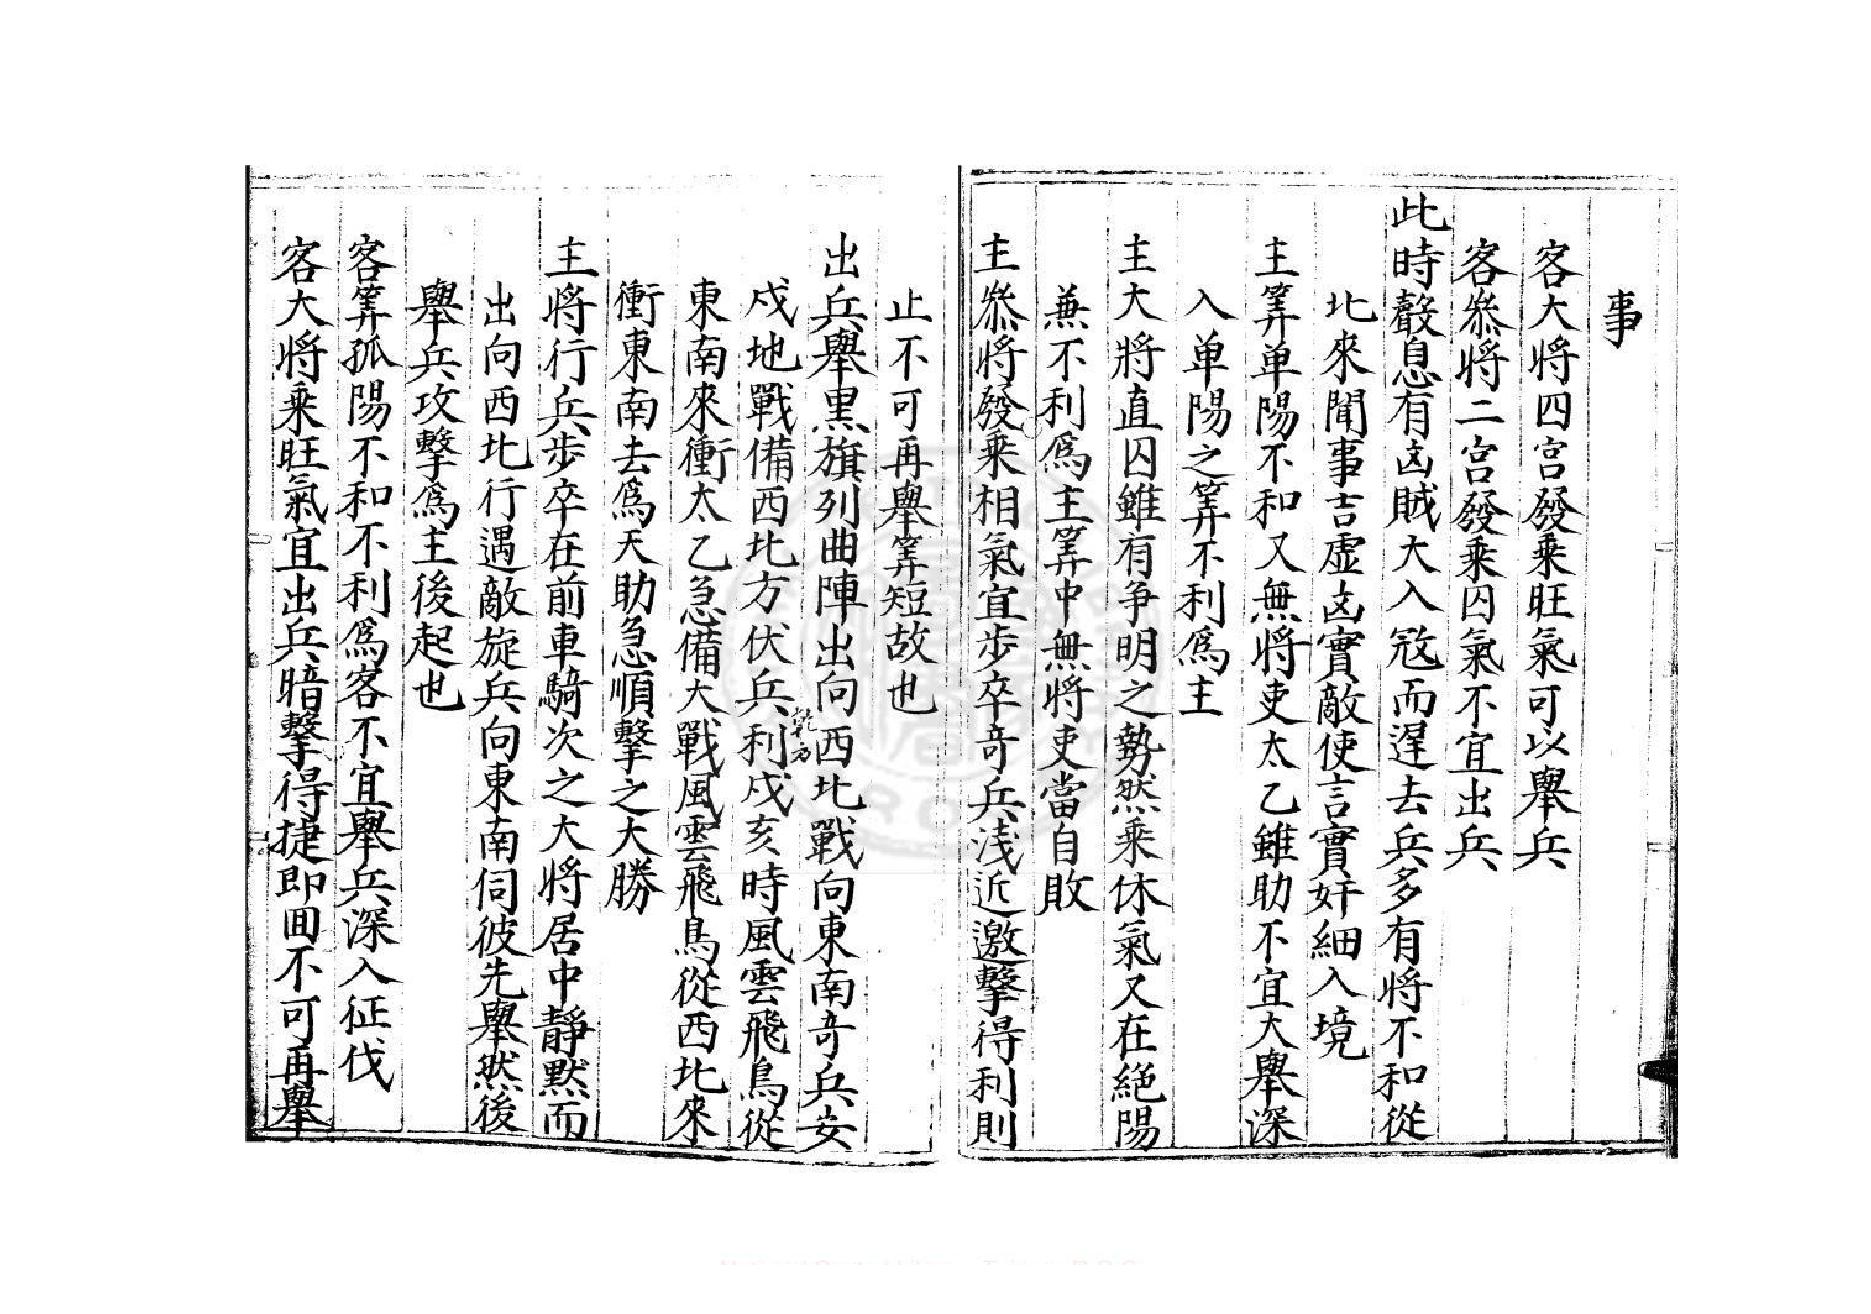 事
客大將四宮發乘旺氣可以舉兵
客叅將二宮發乘囚氣不宜出兵
此時聲息有凶賊大入冦而遲去兵多有將不和從
北來聞事吉虛凶實敵使言實奸細入境
主筭单陽不和又無將吏太乙雖助不宜大舉深
入单陽之筭不利爲主
主大將直囚雖有争明之勢然乘休氣又在絕陽
兼不利爲主筭中無將吏當自敗
主叅將發乘相氣宜步卒竒兵浅近邀擊得利則
止不可再舉筭短故也
出兵舉黒旗列曲陣出向西北戰向東南竒兵安
戍地戰備西北方伏兵利乾方戍亥時風雲飛鳥從
東南來衝太乙急備大戰風雲飛鳥從西北來
衝東南去爲天助急順擊之大勝
主將行兵步卒在前車騎次之大將居中靜默而
出向西北行遇敵旋兵向東南伺彼先舉然後
舉兵攻擊爲主後起也
客筭孤陽不和不利爲客不宜舉兵深入征伐
客大將乘旺氣宜出兵暗擊得捷即囬不可再舉